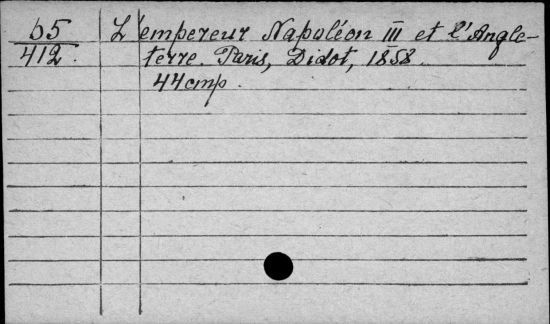 b5 L'empereur Napoléon III et l'Angle-
412. terre. Paris, Didot, 1858.
44 cmp.